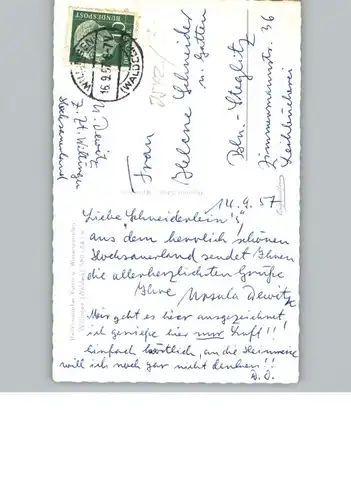 DEUTSCHE
BUNDESPOST
WILLINGEN
16.9.57
(WALDECK)
U. Dewitz
z. Zt. Willingen
Hochsauerland
Frau
Helene Schneider
u. Gatten
Bln.-Steglitz
Zimmermannstr. 36
Leihbücherei
14.9.57
Liebe Schneiderlein's!
aus dem herrlich schönen
Hochsauerland sendet Ihnen
die allerherzlichsten Grüße
Ihre Ursula Dewitz
Mir geht es hier ausgezeichnet
ich genieße hier nur Luft!!!
Einfach köstlich, an die Heimreise
will ich noch gar nicht denken!!
D.O.